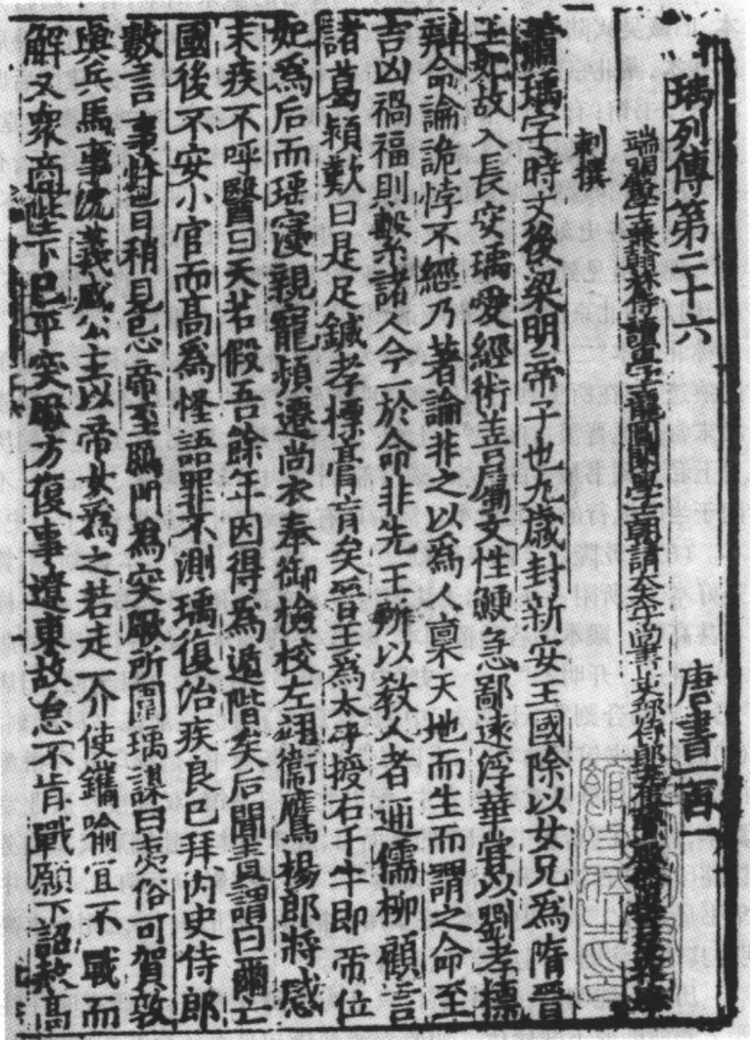 瑀列傳第二十六 唐書一百一
端明殿學士兼翰林侍讀學士龍圖閣學士朝請大夫守尚書吏部侍郎充集賢殿修撰臣宋祁奉
勑撰
蕭瑀字時文後梁明帝子也九歲封新安王國除以女兄為隋晉
王妃故入長安瑀愛經術善屬文性鯁急鄙遠浮華嘗以劉孝標
辯命論詭悖不經乃著論非之以為人稟天地而生而謂之命至
吉凶禍福則繫諸人今一於命非先王所以教人者通儒柳顧言
諸葛頴歎曰是足鍼孝標膏肓矣晉王為太子授右千牛即帝位
妃為后而瑀寖親寵頻遷尚衣奉御檢校左翊衞鷹楊郎將感
末疾不呼醫曰天若假吾餘年因得為遁階矣后聞責謂曰爾亡
國後不安小官而高為怪語罪不測瑀復治疾良已拜内史侍郎
數言事忤旨稍見忌帝至鴈門為突厥所圍瑀謀曰夷俗可賀敦
與兵馬事況義成公主以帝女為之若走一介使鐫喻宜不戰而
解又衆商陛下已平突厥方復事遼東故怠不肯戰願下詔赦高